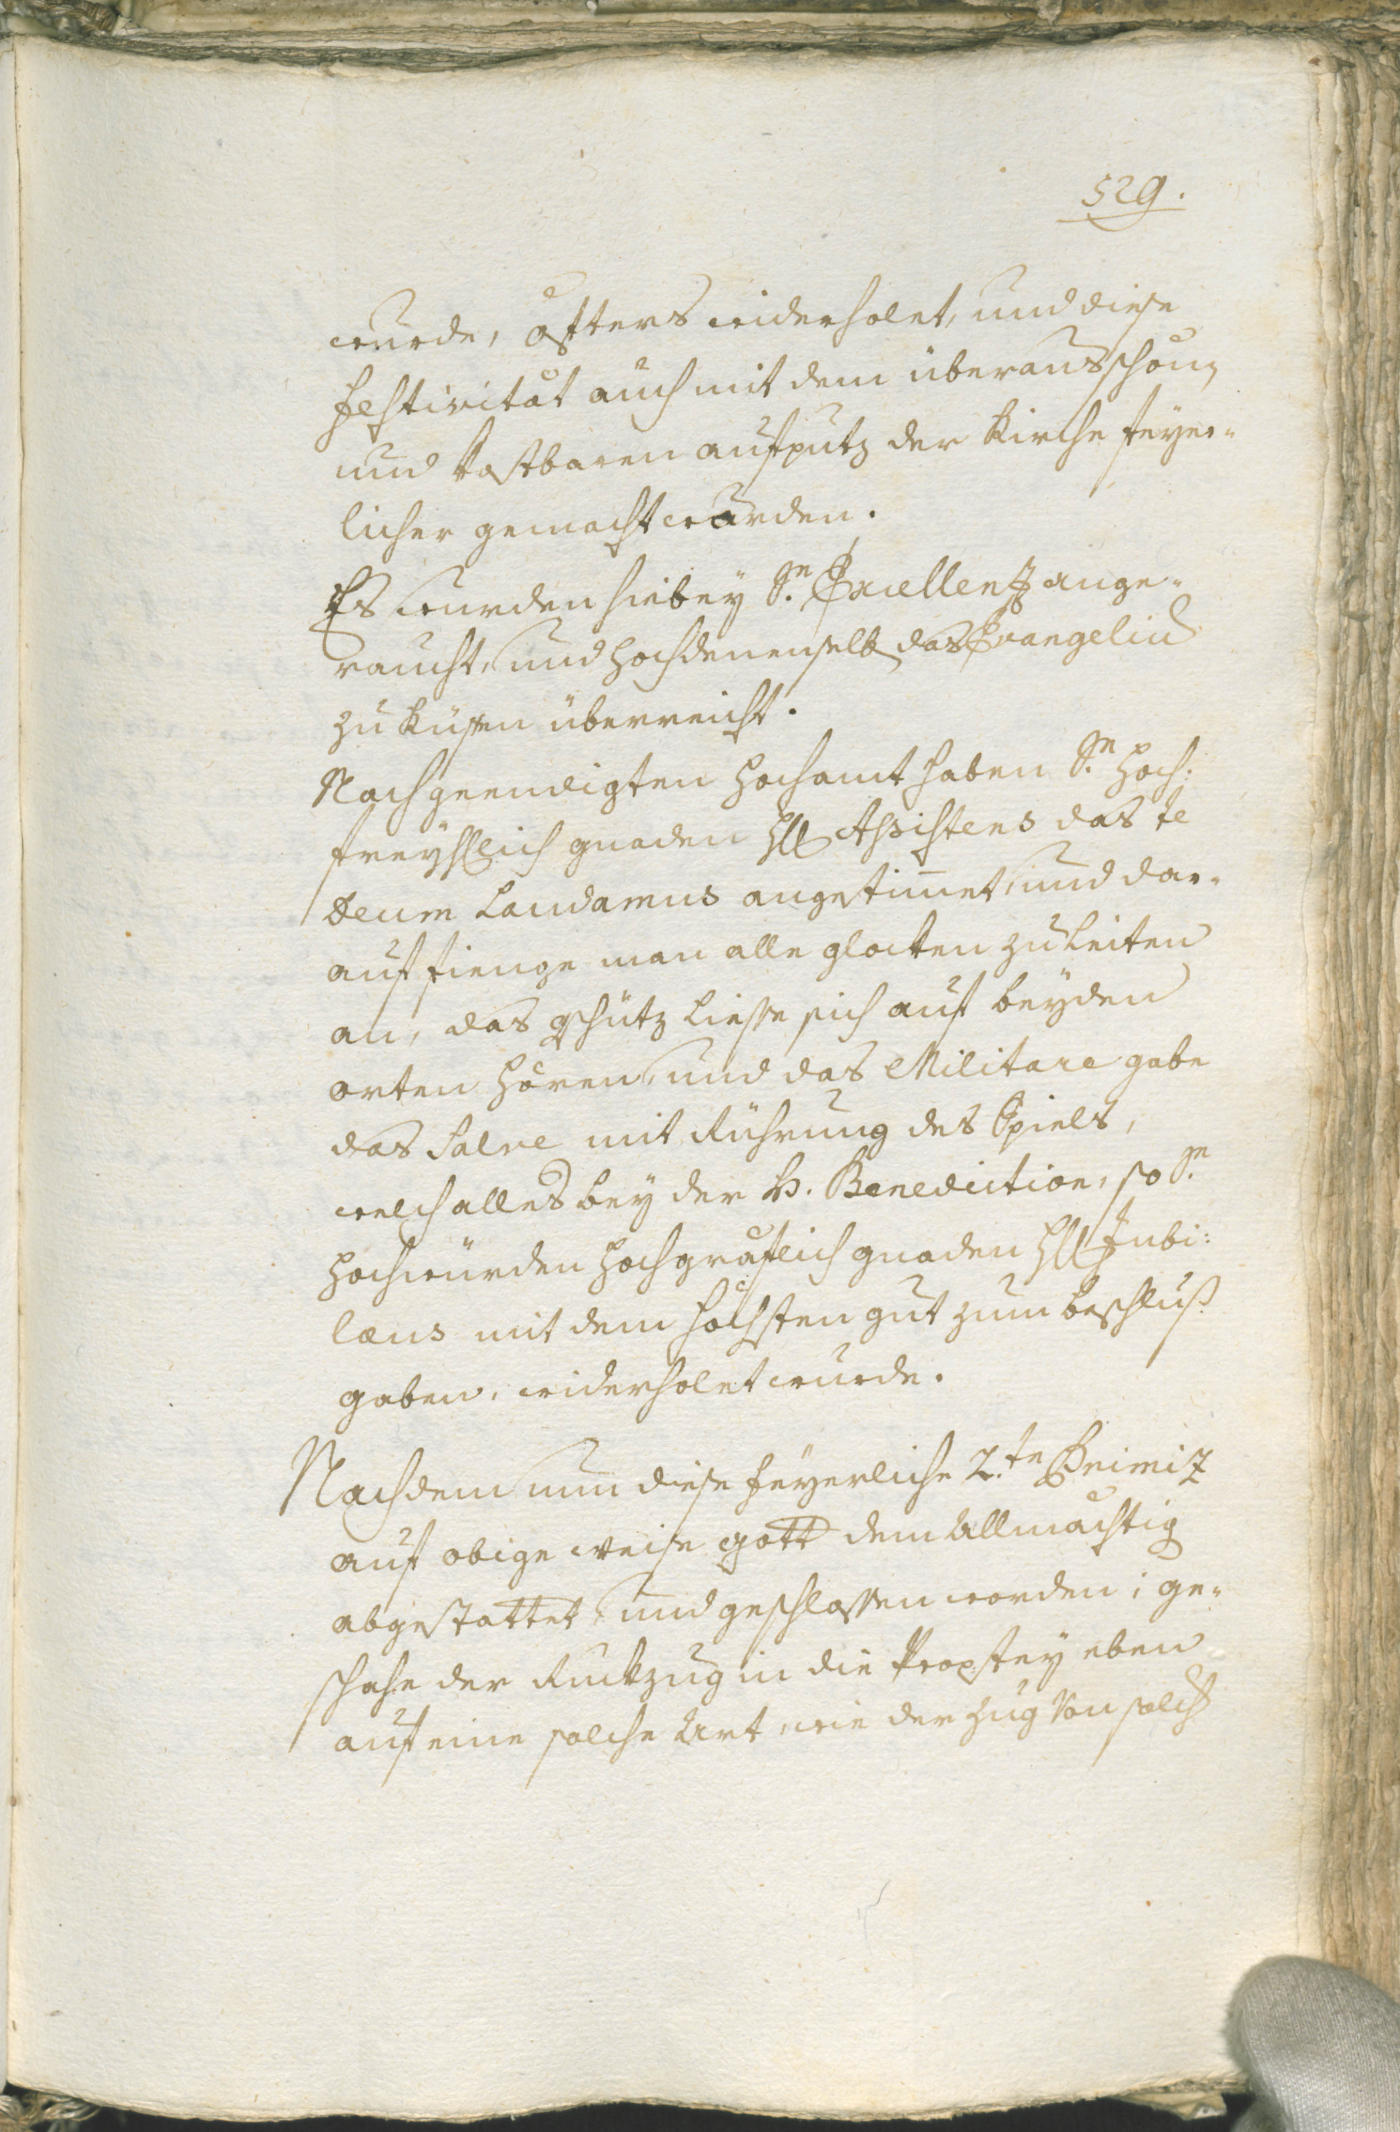 529.
wurde, öfters widerholet, und diese
Festivität auch mit dem überaus schön,
und kostbaren aufputz der Kirche feyer-
licher gemacht worden.
Es wurden hiebey Sr. Excellenz ange-
raucht, und hochdenenselb das Evangeliu
zu küssen überreicht.
Nach geendigten hochamt haben Sr. Hoch:
freyhlich gnaden H Assistens das te
Deum Laudamus angestimet, und dar-
auf fienge man alle glocken zu leiten
an, das gschütz liesse sich auf beyden
orten hören, und das Militare gabe
das Salve mit Rührung des Spiels,
welch alles bey der H. Benediction, so Sr.
hochwürden hochgräflich gnaden H Jubi:
læus mit dem höchsten gut zum beschluß
gaben, widerholet wurde.
Nachdem nun diese feyerliche 2.te Primiz
auf obige weise gott dem Allmächtig
abgestattet, und geschlossen worden; ge-
schahe der Ruckzug in die Propstey eben
auf eine solche Art, wie der Zug von solch